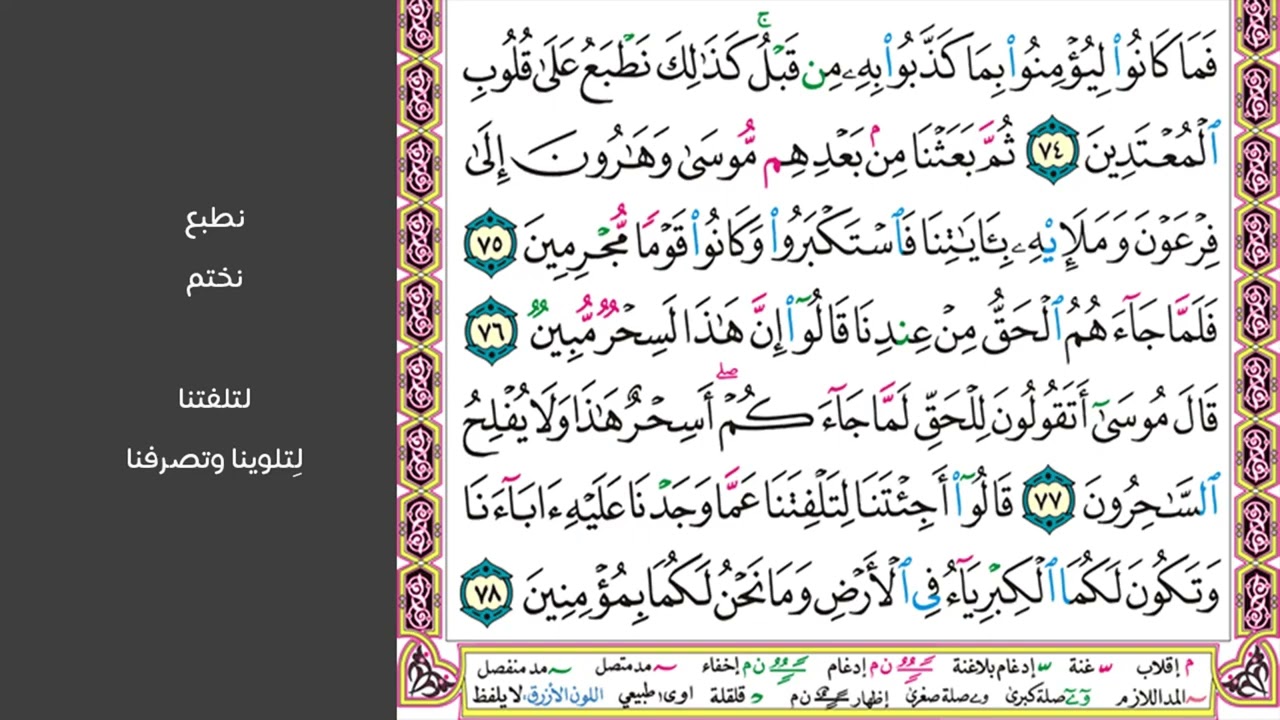 فَمَا كَانُوا۟ لِيُؤْمِنُوا۟ بِمَا كَذَّبُوا۟ بِهِۦ مِن قَبْلُ ۚ كَذَٰلِكَ نَطْبَعُ عَلَىٰ قُلُوبِ
ٱلْمُعْتَدِينَ ٧٤ ثُمَّ بَعَثْنَا مِنۢ بَعْدِهِم مُّوسَىٰ وَهَٰرُونَ إِلَىٰ
فِرْعَوْنَ وَمَلَإِي۟هِۦ بِـَٔايَٰتِنَا فَٱسْتَكْبَرُوا۟ وَكَانُوا۟ قَوْمًا مُّجْرِمِينَ ٧٥
فَلَمَّا جَآءَهُمُ ٱلْحَقُّ مِنْ عِندِنَا قَالُوٓا۟ إِنَّ هَٰذَا لَسِحْرٌ مُّبِينٌ ٧٦
قَالَ مُوسَىٰٓ أَتَقُولُونَ لِلْحَقِّ لَمَّا جَآءَكُمْ ۖ أَسِحْرٌ هَٰذَا وَلَا يُفْلِحُ
ٱلسَّٰحِرُونَ ٧٧ قَالُوٓا۟ أَجِئْتَنَا لِتَلْفِتَنَا عَمَّا وَجَدْنَا عَلَيْهِ ءَابَآءَنَا
وَتَكُونَ لَكُمَا ٱلْكِبْرِيَآءُ فِى ٱلْأَرْضِ وَمَا نَحْنُ لَكُمَا بِمُؤْمِنِينَ ٧٨
م إقلاب غنة إدغام بلاغنة ن م إدغام ن م إخفاء مد متصل مد منفصل
المد اللازم صلة كبرى صلة صغرى إظهار ن م قلقلة اوى طبيعي اللون الأزرق: لا يلفظ
نطبع
نختم
لتلفتنا
لِتلوينا وتصرفنا